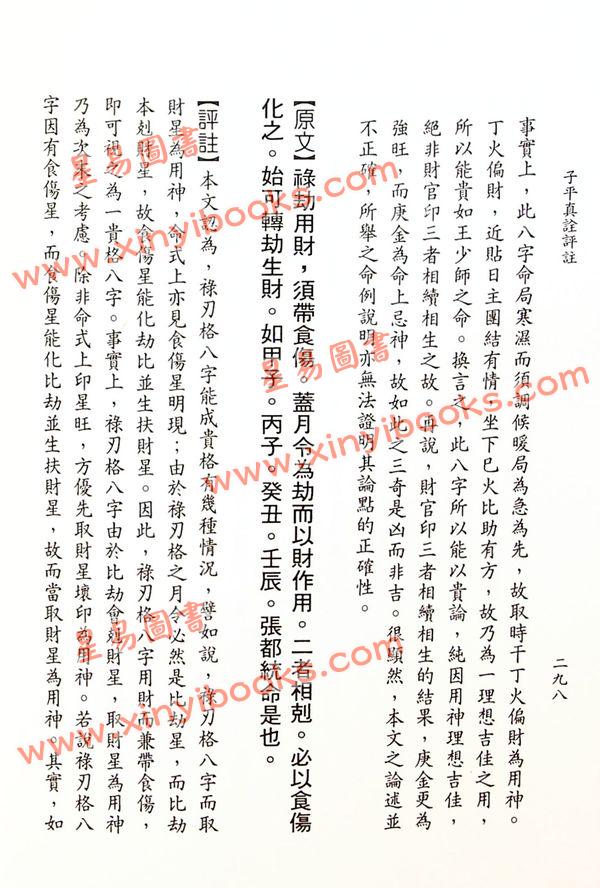 子平真詮評註
二九八
事實上，此八字命局寒濕而須調候暖局為急為先，故取時干丁火偏財為用神。
丁火偏財，近貼日主團結有情，坐下巳火比助有方，故乃為一理想吉佳之用，
所以能貴如王少師之命。換言之，此八字所以能以貴論，純因用神理想吉佳，
絕非財官印三者相續相生之故。再說，財官印三者相續相生的結果，庚金更為
強旺，而庚金為命上忌神，故如此之三奇是凶而非吉。很顯然，本文之論述並
不正確，所舉之命例說明亦無法證明其論點的正確性。
【原文】祿劫用財，須帶食傷。蓋月令為劫而以財作用。二者相剋。必以食傷
化之。始可轉劫生財。如甲子。丙子。癸丑。壬辰。張都統命是也。
【評註】本文認為，祿刃格八字能成貴格有幾種情況，譬如說，祿刃格八字而取
財星為用神，命式上亦見食傷星明現；由於祿刃格之月令必然是比劫星，而比劫
本剋財星，故食傷星能化劫比並生扶財星。因此，祿刃格八字用財而兼帶食傷，
即可視之為一貴格八字。事實上，祿刃格八字由於比劫會剋財星，取財星為用神
乃為次末之考慮，除非命式上印星旺，方優先取財星壞印為用神。若說祿刃格八
字因有食傷星，而食傷星能化比劫並生扶財星，故而當取財星為用神。其實，如
星易圖書
www.xinyibooks.com
星易圖書
www.xinyibooks.com
星易圖書
www.xinyibooks.com
星易圖書
www.xinyibooks.com